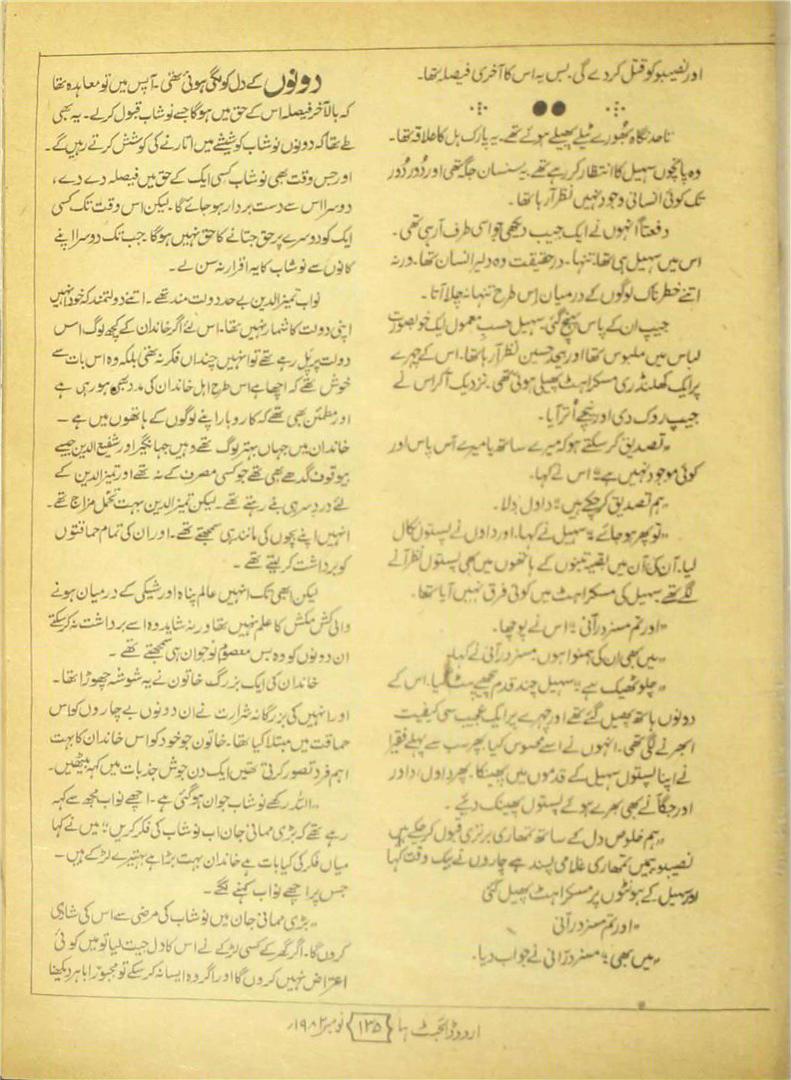 اور نصیبو کو قتل کر دے گی۔ بس یہ اس کا آخری فیصلہ تھا۔
تاحد نگاہ بھورے ٹیلے پھیلے ہوئے تھے۔ یہ پارک ہل کا علاقہ تھا۔
وہ پانچوں سہیل کا انتظار کر رہے تھے۔ یہ سنسان جگہ تھی اور دُور دُور
تک کوئی انسانی وجود نہیں نظر آرہا تھا۔
دفعتاً انہوں نے ایک جیپ دیکھی جو اسی طرف آرہی تھی۔
اس میں سہیل ہی تھا۔ تنہا۔ درحقیقت وہ دلیر انسان تھا۔ ورنہ
اتنے خطرناک لوگوں کے درمیان اس طرح تنہا نہ چلا آتا۔
جیپ ان کے پاس پہنچ گئی۔ سہیل حسب معمول ایک خوبصورت
لباس میں ملبوس تھا اور بیحد حسین نظر آرہا تھا۔ اس کے چہرے
پر ایک کھلنڈری مسکراہٹ پھیلی ہوئی تھی۔ نزدیک آکر اس نے
جیپ روک دی اور نیچے اُتر آیا۔
"تصدیق کر سکتے ہو کہ میرے ساتھ یا میرے آس پاس اور
کوئی موجود نہیں ہے" اس نے کہا۔
"ہم تصدیق کر چکے ہیں" داول بولا۔
"تو پھر ہو جائے" سہیل نے کہا۔ اور داول نے پستول نکال
لیا۔ آن کی آن میں بقیہ تینوں کے ہاتھوں میں بھی پستول نظر آنے
لگے تھے سہیل کی مسکراہٹ میں کوئی فرق نہیں آیا تھا۔
"اور تم مسز درانی" اس نے پوچھا۔
"میں بھی ان کی ہمنوا ہوں" مسز درانی نے کہا۔
"چلو ٹھیک ہے" سہیل چند قدم پیچھے ہٹ گیا۔ اس کے
دونوں ہاتھ پھیل گئے تھے اور چہرے پر ایک عجیب سی کیفیت
ابھرنے لگی تھی۔ انہوں نے اسے محسوس کیا۔ پھر سب سے پہلے فقیرا
نے اپنا پستول سہیل کے قدموں میں پھینکا۔ پھر داول، دادو
اور جگا نے بھی بھرے ہوئے پستول پھینک دیئے۔
"ہم خلوص دل کے ساتھ تمھاری برتری قبول کر چکے ہیں
نصیبو ہمیں تمھاری غلامی پسند ہے چاروں نے بیک وقت کہا
اور سہیل کے ہونٹوں پر مسکراہٹ پھیل گئی
"اور تم مسز درانی
"میں بھی" مسز درانی نے جواب دیا۔
دونوں کے دل کو لگی ہوئی تھی۔ آپس میں تو معاہدہ تھا
کہ بالآخر فیصلہ اس کے حق میں ہوگا جسے نوشاب قبول کرلے۔ یہ بھی
طے تھا کہ دونوں نوشاب کو شیشے میں اتارنے کی کوشش کرتے رہیں گے۔
اور جس وقت بھی نوشاب کسی ایک کے حق میں فیصلہ دے دے،
دوسرا اس سے دست بردار ہو جائے گا۔ لیکن اس وقت تک کسی
ایک کو دوسرے پر حق جتانے کا حق نہیں ہوگا جب تک دوسرا اپنے
کانوں سے نوشاب کا یہ اقرار نہ سن لے۔
نواب تمیز الدین بے حد دولت مند تھے۔ اتنے دولتمند کہ خود انہیں
اپنی دولت کا شمار نہیں تھا۔ اس لئے اگر خاندان کے کچھ لوگ اس
دولت پر پل رہے تھے تو انہیں چنداں فکر نہ تھی بلکہ وہ اس بات سے
خوش تھے کہ اچھا ہے اس طرح اہل خاندان کی مدد بھی ہو رہی ہے
اور مطمئن بھی تھے کہ کاروبار اپنے لوگوں کے ہاتھوں میں ہے۔
خاندان میں جہاں بہتر لوگ تھے وہیں جہانگیر اور شفیع الدین جیسے
بیوقوف گدھے بھی تھے جو کسی مصرف کے نہ تھے اور تمیز الدین کے
لئے درد سر ہی بنے رہتے تھے۔ لیکن تمیز الدین بہت تحمل مزاج تھے۔
انہیں اپنے بچوں کی مانند ہی سمجھتے تھے۔ اور ان کی تمام حماقتوں
کو برداشت کر لیتے تھے۔
لیکن ابھی تک انہیں عالم پناہ اور شیکی کے درمیان ہونے
والی کش مکش کا علم نہیں تھا ورنہ شاید وہ اسے برداشت نہ کر سکتے
ان دونوں کو وہ بس معصوم نوجوان ہی سمجھتے تھے۔
خاندان کی ایک بزرگ خاتون نے یہ شوشہ چھوڑا تھا۔
اور انہیں کی بزرگانہ شرارت نے ان دونوں بے چاروں کو اس
حماقت میں مبتلا کیا تھا۔ خاتون جو خود کو اس خاندان کا بہت
اہم فرد تصور کرتی تھیں ایک دن جوش جذبات میں کہہ بیٹھیں۔
"اللہ رکھے نوشاب جوان ہو گئی ہے۔ اچھے نواب مجھ سے کہہ
رہے تھے کہ بڑی ممانی جان اب نوشاب کی فکر کریں" میں نے کہا
میاں فکر کی کیا بات ہے خاندان بہت بڑا ہے بہتیرے لڑکے ہیں۔
جس پر اچھے نواب کہنے لگے۔
"بڑی ممانی جان میں نوشاب کی مرضی سے اس کی شادی
کروں گا۔ اگر گھر کے کسی لڑکے نے اس کا دل جیت لیا تو میں کوئی
اعتراض نہیں کروں گا اور اگر وہ ایسا نہ کر سکے تو مجبوراً باہر دیکھنا
اردو ڈائجسٹ ہما ۱۳۵ نومبر ۱۹۸۲ء